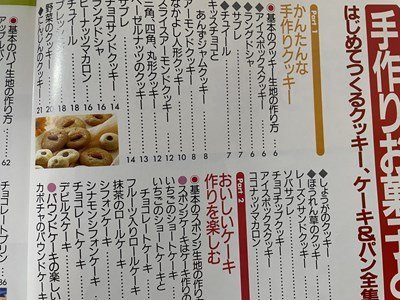 手作りお菓子
はじめてつくるクッキー、ケーキ&パン全集
Part 1
かんたんな
手作りクッキー
●基本のクッキー生地の作り方……6
◆アイスボックスクッキー……6
◆ラングドシャ……7
◆サブレ……7
◆チュイール……7
キッスチョコと
あんずジャムクッキー……8
アーモンドクッキー……8
スライスアーモンドクッキー……10
なかよし人形クッキー……12
三角、四角、丸形クッキー
サブレ……14
チョコサンドクッキー……14
ラングドシャ……16
チョコナッツマカロン……16
チュイール……18
野菜のクッキー……20
にんじんのクッキー……21
◆しょうがのクッキー
◆ほうれん草のクッキー
レーズンサンドクッキー
ソバサブレ
チョコチップクッキー
アイスボックスクッキー
ココナッツマカロン
Part 2
おいしいケーキ
作りを楽しむ
●基本のスポンジ生地の作り
●スポンジケーキ作りの
いちごのショートケーキ
いちごのショートケ
チョコレートケーキ
フルーツ入りロールケーキ
抹茶のロールケーキ
シフォンケーキ
シナモンシフォンケーキ
チョコレートケーキ
デビルスケーキ
●パウンドケーキの楽しい
カボチャのパウンドケー
●基本のパイ生地の作り方
62
チョコレートプリン
86